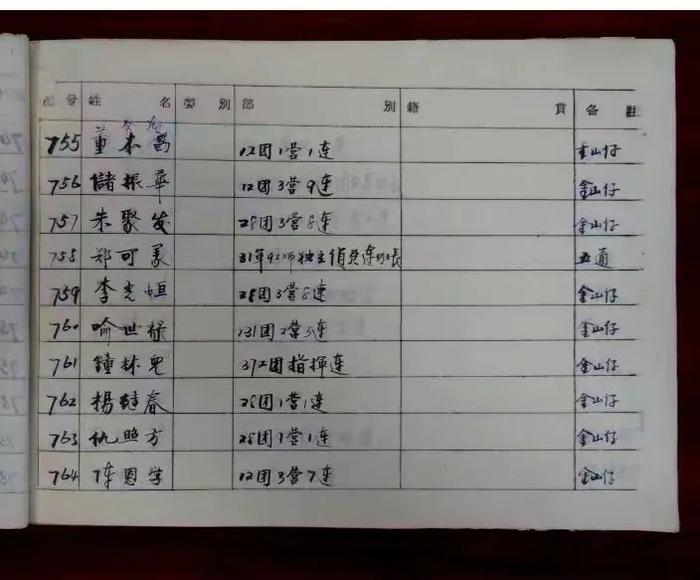 号 姓 名 类 别 部 别 籍 貫 备 註
755 董本昌 12团1营1连 金山仔
756 儲振華 12团3营9连 金山仔
757 朱聚发 28团3营8连 金山仔
758 郑可美 31军92师独立偵察连班长 五通
759 李光恒 28团3营8連 金山仔
760 喻世禄 131团2营5连 金山仔
761 鐘林児 372团指揮连 金山仔
762 楊 春 28团1营1连 金山仔
763 仇照方 28团1营1连 金山仔
764 陈恩学 12团3营7连 金山仔